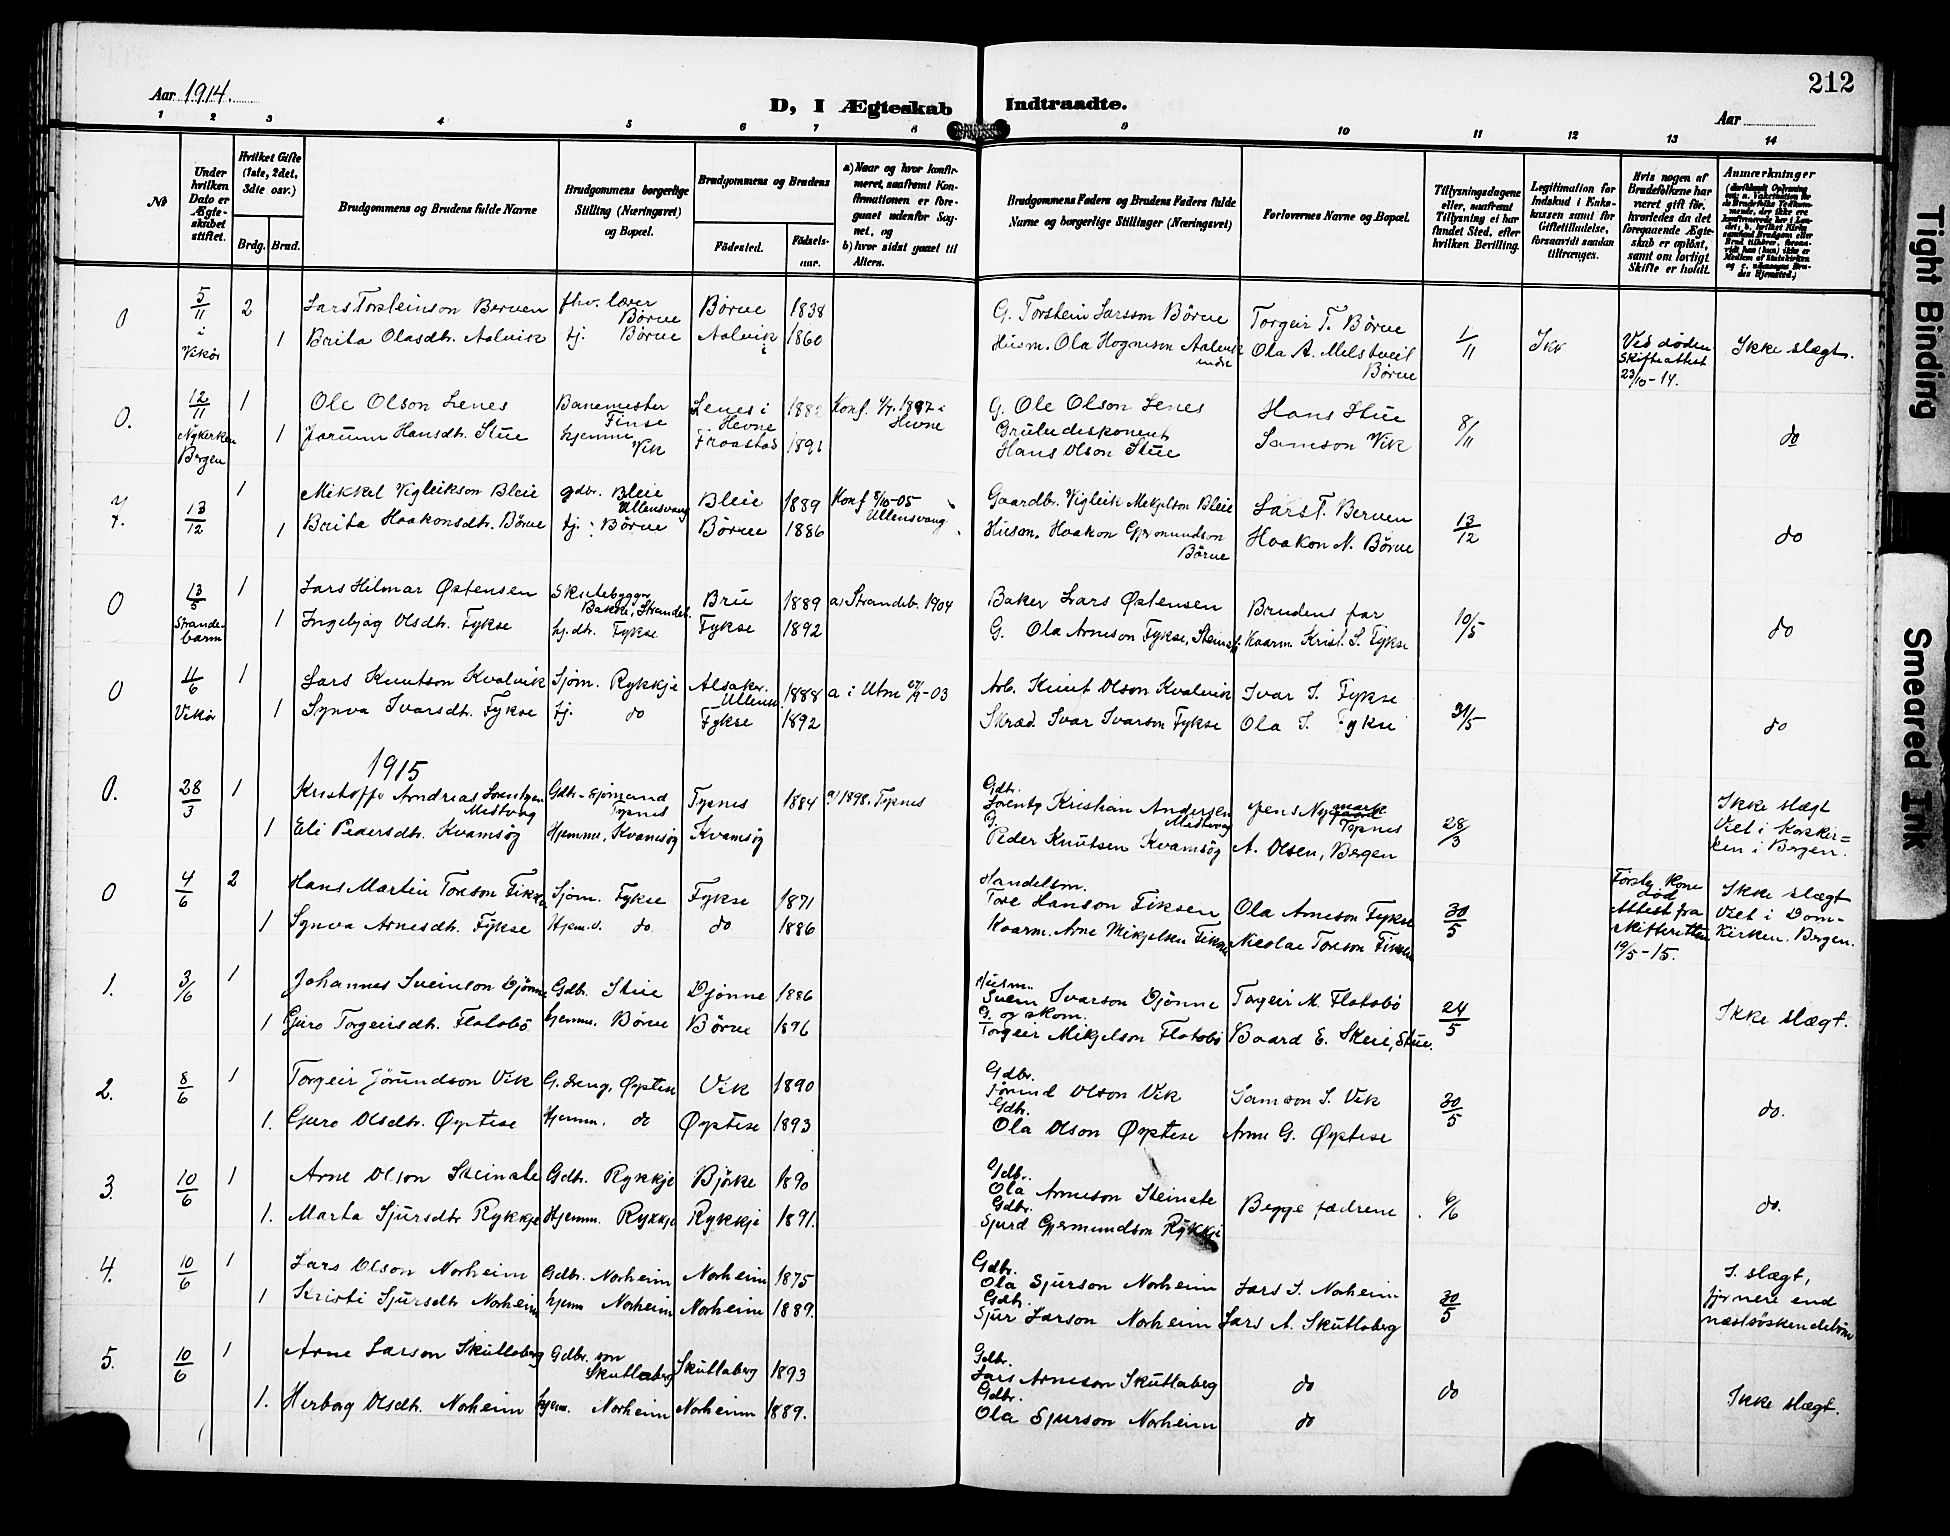 212
Aar 1914.
D, I Ægteskab Indtraadte.
Aar
1 2 3 4 5 6 7 8 9 10 11 12 13 14
No
Under hvilken Dato er Ægteskabet stiftet.
Hvilket Gifte (1ste, 2det, 3die osv.)
Brdg. Brud.
Brudgommens og Brudens fulde Navne
Brudgommens borgerlige Stilling (Næringsvei) og Bopæl.
Brudgommens og Brudens
Fødested. Fødselsaar.
a) Naar og hvor konfirmeret, saafremt Konfirmationen er foregaaet udenfor Sognet, og
b) hvor sidst gaaet til Alters.
Brudgommens Faders og Brudens Faders fulde Navne og borgerlige Stillinger (Næringsvei)
Forlovernes Navne og Bopæl.
Tillysningsdagene eller, saafremt Tillysning ei har fundet Sted, efter hvilken Bevilling.
Legitimation for Indskud i Enkekassen samt for Giftetilladelse, forsaavidt saadan tiltrænges.
Hvis nogen af Brudefolkene har været gift før, hvorledes da det foregaaende Ægteskab er opløst, samt om lovligt Skifte er holdt.
Anmærkninger
0 5/11 i Vikør 2 Lars Torsteinson Berven fhv. lærer Børve Børve 1838 G. Torstein Larsson Børve Torgeir T. Børve 1/11 Ved døden Skifteattest 23/10-14. Ikke slægt.
1 Brita Olasdtr. Aalvik tj. Børve Aalvik i 1860 Husm. Ola Hogneson Aalvik indre Ola A. Melstveit Børve
0. 12/11 Nykirken Bergen 1 Ole Olson Lenes Banemester Finse Lenes i Hevne 1882 Konf. 1897 i Hevne G. Ole Olson Lenes Hans Stue 8/11 do
1 Jorunn Hansdtr. Stue hjemme Vik Fraastad 1891 Hans Olson Stue Samson Vik
7. 13/12 1 Mikkel Vigleikson Bleie gdbr. Bleie Ullensvang Bleie 1889 Konf 8/10-05 Ullensvang Gaardbr. Vigleik Mikjelson Bleie Lars T. Berven 13/12 do
1 Brita Haakonsdtr. Børve tj. Børve Børve 1886 Husm. Haakon Gjermundson Børve Haakon N. Børve
0 13/5 Strandebarm 1 Lars Hilmar Østensen Skutebygger Bakke, Strandeb. Bru 1889 a) Strandeb. 1904 Baker Lars Østensen Brudens far 10/5 do
1 Ingebjøg Olsdtr. Fykse hj.dtr. Fykse Fykse 1892 G. Ola Arneson Fykse, Kaarm. Krist. S. Fykse
0 11/6 Vikør 1 Lars Knutson Kvalvik Sjøm. Rykkje Alsaker Ullensv. 1888 a i Utne -03 Arb. Knut Olson Kvalvik Ivar I. Fykse 31/5 do
1 Synva Ivarsdtr. Fykse tj. do Fykse 1892 Skræd. Ivar Ivarson Fykse Ola I. Fykse
1915
0. 28/3 1 Andreas Lorentzen Mestvag Gdbr. sjømand Typnes Typnes 1884 a) 1898. Typnes Gdbr. Kristian Andersen Mestvag Typnes 28/3 Ikke slægt Viet i Korskirken i Bergen.
1 Eli Pedersdtr. Kvamsøy Hjemme, Kvamsøy Kvamsøy G. Peder Knutsen Kvamsøy A. Olsen, Bergen
0 4/6 2 Hans Martin Toreson Fikse Sjøm. Fykse Fykse 1871 Handelsm. Tore Hanson Fiksen Ola Arneson Fykse 30/5 Forrige Kone død Attest fra skifteretten 19/5-15. Ikke slægt Viet i Domkirken. Bergen.
1 Synva Arnesdtr. Fykse Hjem. d. do do 1886 Kaarm. Arne Mikjelsen Fikse Nicolai Toreson Fiksen
1. 3/6 1 Johannes Sveinson Djønne Gdbr. Stue Djønne 1886 Husm. Svein Ivarson Djønne Torgeir M. Flotabø 24/5 Ikke slægt.
1 Guro Torgeirsdtr. Flotabø hjemm. Børve Børve 1896 G. og skom. Torgeir Mikjelson Flotabø Baard E. Skeie, Stue.
2. 8/6 1 Torgeir Jørundson Vik G. dreng, Øystese Vik 1890 Gdbr. Jørund Olson Vik Samson S. Vik 30/5 do.
1. Guro Olsdtr. Øystese Hjemm. do Øystese 1893 Gdbr. Ola Olson Øystese Arne G. Øystese
3. 10/6 1 Arne Olson Steinste Gdbr. Rykkje Bjørke 1890 Gdbr. Ola Arneson Steinste Begge fædrene. 6/6 do.
1. Marta Sjursdtr Rykkje Hjemm. Rykkje Rykkje 1891. Gdbr. Sjurd Gjermundson Rykkje
4. 10/6 1 Lars Olson Norheim Gdbr. Norheim Norheim 1875 Gdbr. Ola Sjurson Norheim Lars S. Norheim 30/5 I slægt, fjernere end næstsøskendebørn
1 Kristi Sjursdtr Norheim hjemm Norheim Norheim 1889. Gdbr. Sjur Larson Norheim Lars A. Skutlaberg
5. 10/6 1 Arne Larson Skutlaberg Gdbr. son Skutlaberg Skutlaberg 1893 Gdbr. Lars Arneson Skutlaberg do do Ikke slægt.
1. Herborg Olsdtr. Norheim hjem. Norheim Norheim 1889. Gdbr. Ola Sjurson Norheim do
Tight Binding
Smeared Ink